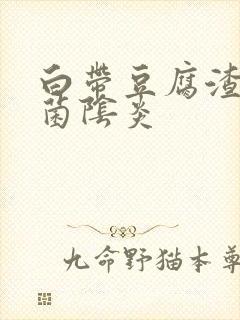 白帶豆腐渣
菌陰炎
九命野猫本尊